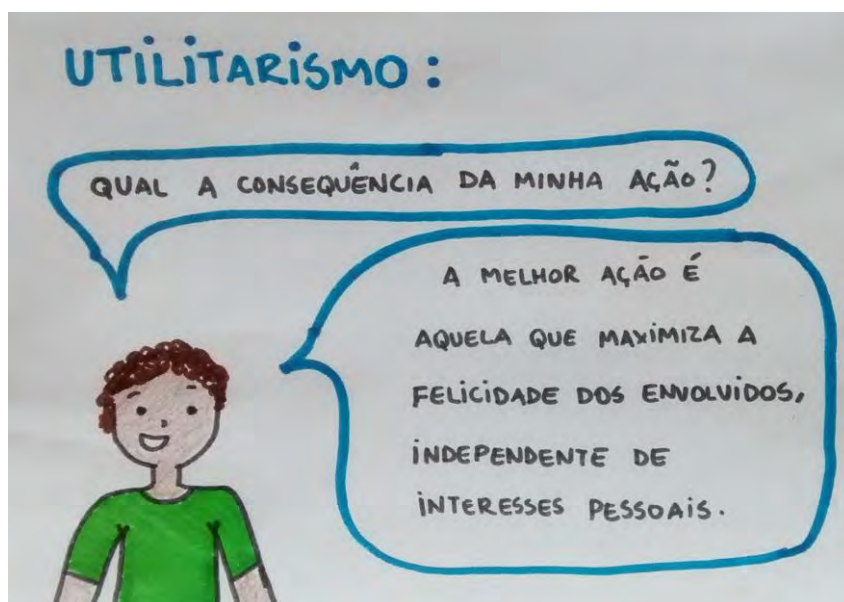 UTILITARISMO:
QUAL A CONSEQUÊNCIA DA MINHA AÇÃO?
A MELHOR AÇÃO É
AQUELA QUE MAXIMIZA A
FELICIDADE DOS ENVOLVIDOS,
INDEPENDENTE DE
INTERESSES PESSOAIS.